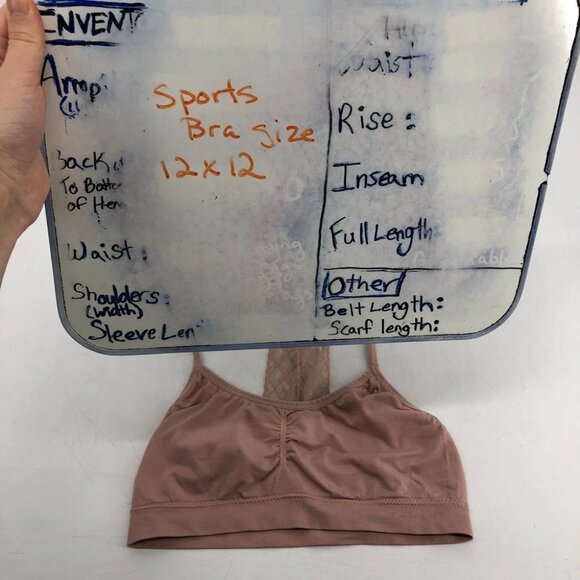 INVENT
Armp
Sports
Bra size
12x12
Back
To Bott
of Hem
Waist:
Shoulders:
(width)
Sleeve Len
Waist
Rise:
Inseam
Full Length
Other
Belt Length:
Scarf length: